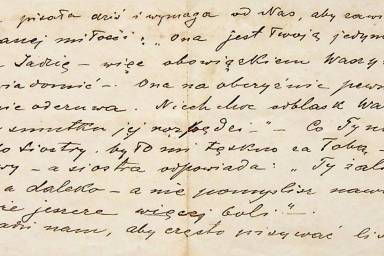 pisała dziś i wymaga od Nas, aby zawi
anej miłości: „Ona jest Twoją jedyn
Jadzię – więc obowiązkiem Waszy
iadomić –. Ona na obczyźnie pewn
nie oderwa. Niech choć odblask Wa
smutku jej rozpędzi –" – Co Ty n
o Siostry, by To mi tęskno za Tobą –
wy – a siostra odpowiada: „Ty żal
a daleko – a nie pomyślisz naw
ie jeszcze więcej boli" –
adzi nam, aby często pisywać lis